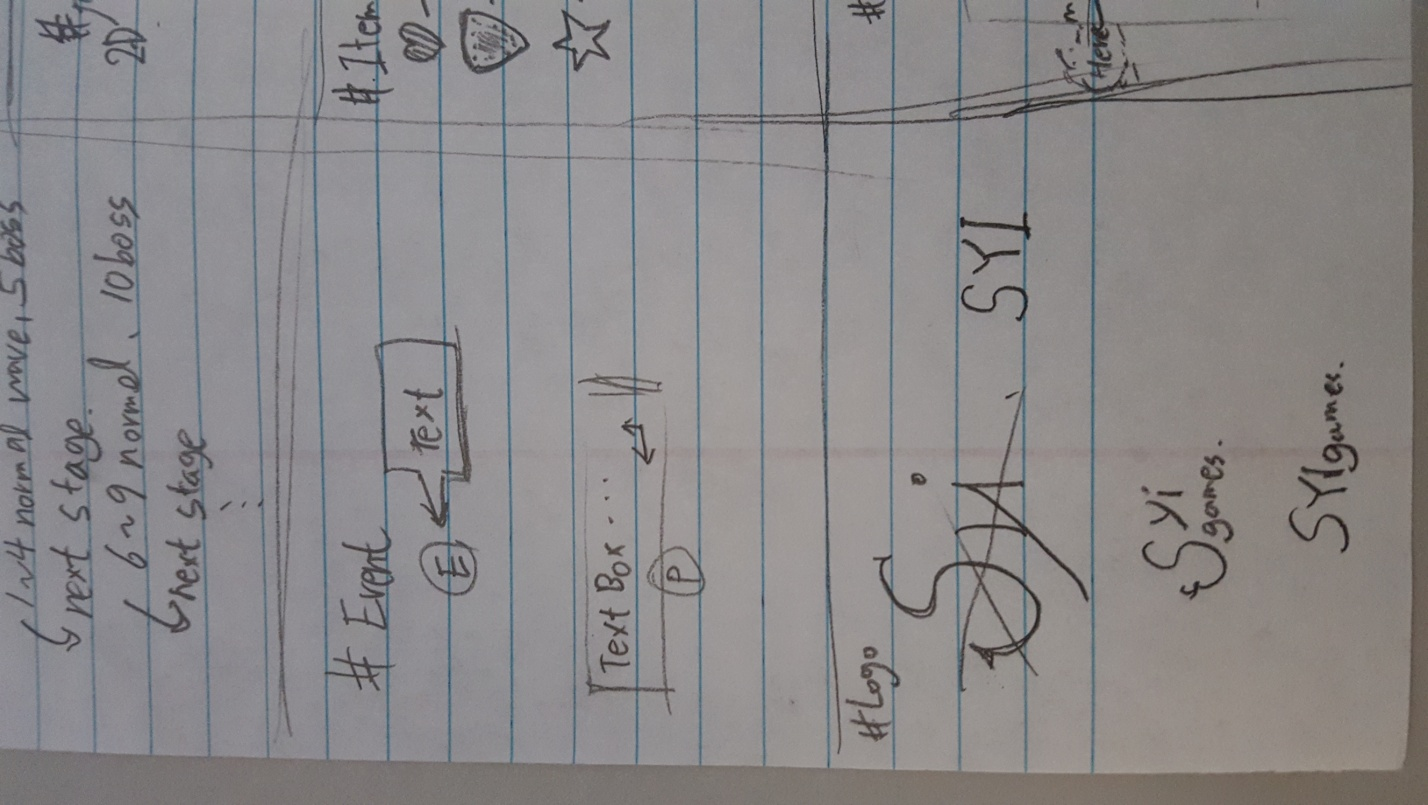 1~4 normal wave, 5 boss
↳ next stage.
6~9 normal, 10 boss
↳ next stage
⋮
#
2D
# Event
Text
E
Text Box....
P
#.Item
#Logo
SYI
Syi
games.
SYIgames.
#
Here